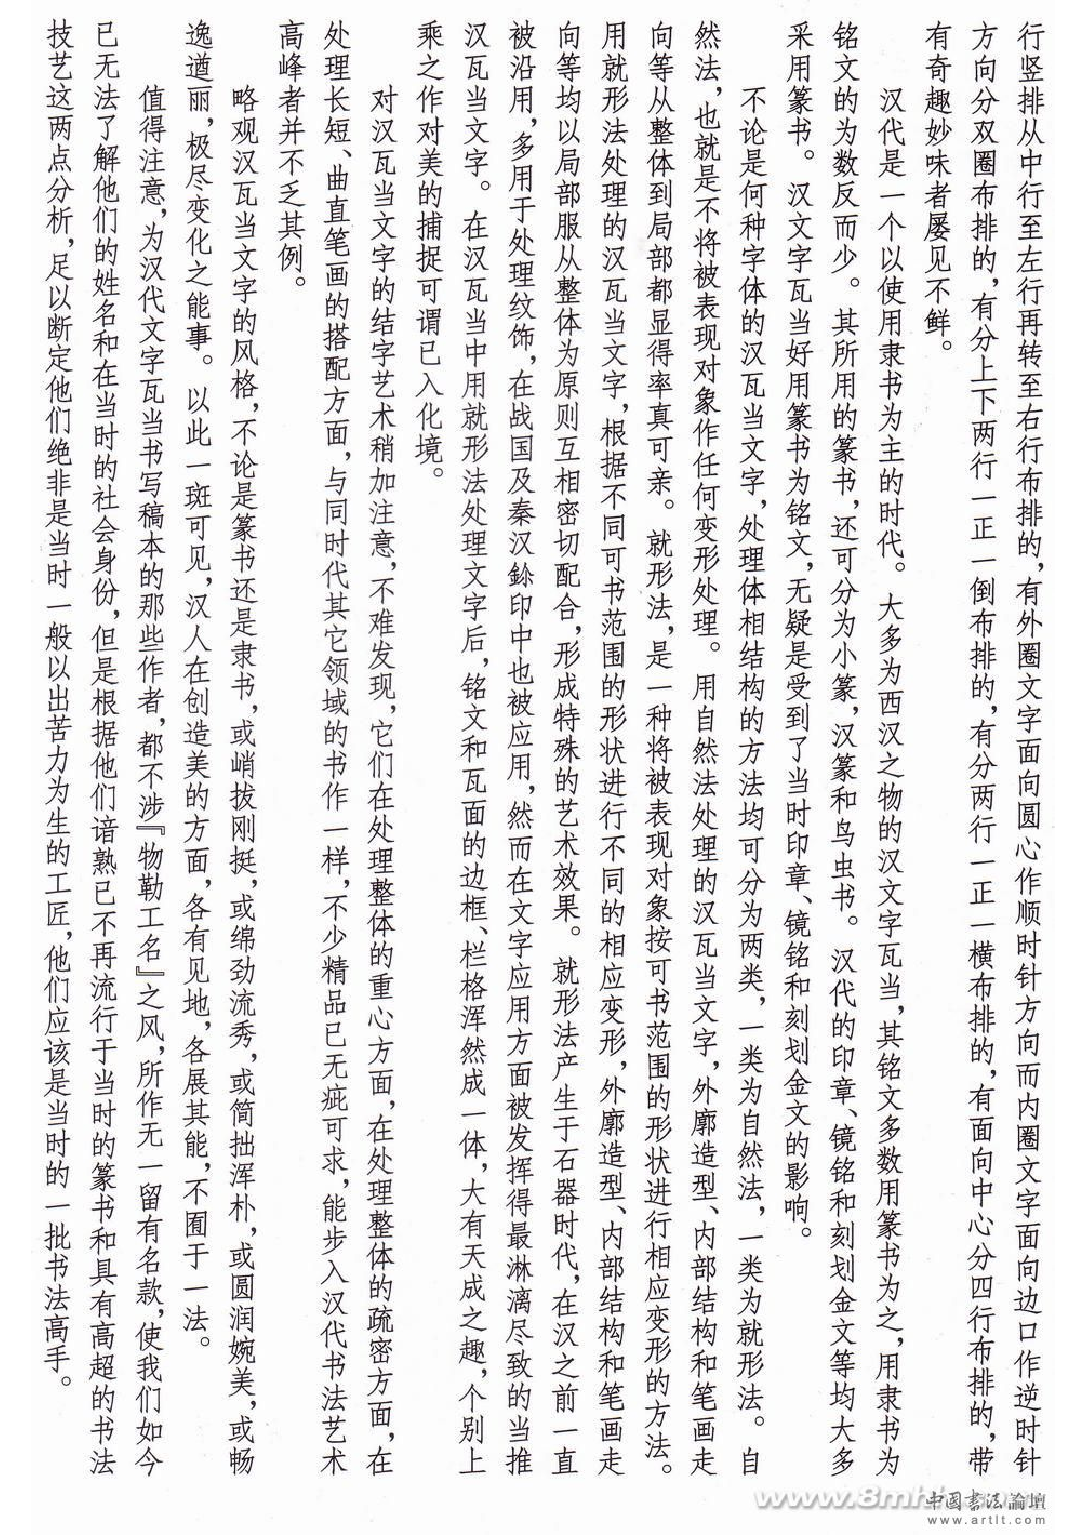 行竖排从中行至左行再转至右行布排的，有外圈文字面向圆心作顺时针方向而内圈文字面向边口作逆时针
方向分双圈布排的，有分上下两行一正一倒布排的，有分两行一正一横布排的，有面向中心分四行布排的，带
有奇趣妙味者屡见不鲜。
汉代是一个以使用隶书为主的时代。大多为西汉之物的汉文字瓦当，其铭文多数用篆书为之，用隶书为
铭文的为数反而少。其所用的篆书，还可分为小篆，汉篆和鸟虫书。汉代的印章、镜铭和刻划金文等均大多
采用篆书。汉文字瓦当好用篆书为铭文，无疑是受到了当时印章、镜铭和刻划金文的影响。
不论是何种字体的汉瓦当文字，处理体相结构的方法均可分为两类，一类为自然法，一类为就形法。自
然法，也就是不将被表现对象作任何变形处理。用自然法处理的汉瓦当文字，外廓造型、内部结构和笔画走
向等从整体到局部都显得率真可亲。就形法，是一种将被表现对象按可书范围的形状进行相应变形的方法。
用就形法处理的汉瓦当文字，根据不同可书范围的形状进行不同的相应变形，外廓造型、内部结构和笔画走
向等均以局部服从整体为原则互相密切配合，形成特殊的艺术效果。就形法产生于石器时代，在汉之前一直
被沿用，多用于处理纹饰，在战国及秦汉鉨印中也被应用，然而在文字应用方面被发挥得最淋漓尽致的当推
汉瓦当文字。在汉瓦当中用就形法处理文字后，铭文和瓦面的边框、栏格浑然成一体，大有天成之趣，个别上
乘之作对美的捕捉可谓已入化境。
对汉瓦当文字的结字艺术稍加注意，不难发现，它们在处理整体的重心方面，在处理整体的疏密方面，在
处理长短、曲直笔画的搭配方面，与同时代其它领域的书作一样，不少精品已无疵可求，能步入汉代书法艺术
高峰者并不乏其例。
略观汉瓦当文字的风格，不论是篆书还是隶书，或峭拔刚挺，或绵劲流秀，或简拙浑朴，或圆润婉美，或畅
逸遒丽，极尽变化之能事。以此一斑可见，汉人在创造美的方面，各有见地，各展其能，不囿于一法。
值得注意，为汉代文字瓦当书写稿本的那些作者，都不涉『物勒工名』之风，所作无一留有名款，使我们如今
已无法了解他们的姓名和在当时的社会身份，但是根据他们谙熟已不再流行于当时的篆书和具有高超的书法
技艺这两点分析，足以断定他们绝非是当时一般以出苦力为生的工匠，他们应该是当时的一批书法高手。
中國書法論壇
www.artlt.com